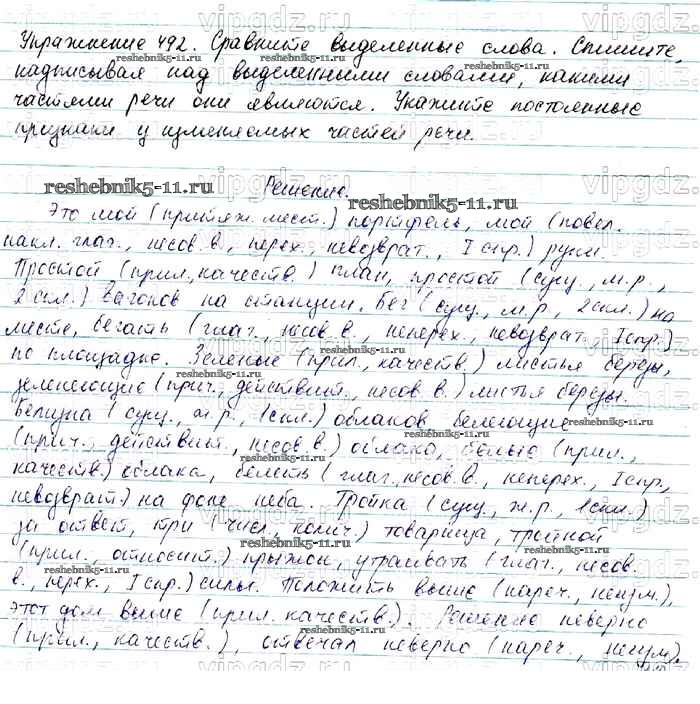 Упражнение 492. Сравните выделенные слова. Спишите,
надписывая над выделенными словами, какими
частями речи они являются. Укажите постоянные
признаки у изменяемых частей речи.
Решение.
Это мой (притяж. мест.) портфель, мой (повел.
накл. глаг., несов. в., перех., невозврат., I спр.) руки.
Простой (прил., качеств.) план, простой (сущ., м.р.,
2 скл.) вагонов на станции. Бег (сущ., м.р., 2 скл.) на
месте, бегать (глаг., несов в., неперех., невозврат., I спр.)
по площадке. Зеленые (прил., качеств.) листья березы,
зеленеющие (прич., действит., несов. в.) листья березы.
Белизна (сущ., ж.р., 1 скл.) облаков белеющие
(прич., действит., несов в.) облака, белые (прил.,
качеств.) облака, белеть (глаг., несов. в., неперех., I спр.,
невозврат.) на фоне неба. Тройка (сущ., ж.р., 1 скл.)
за ответ, три (числ., колич.) товарища, тройной
(прил., относит.) прыжок, утраивать (глаг., несов.
в., перех., I спр.) силы. Положить выше (нареч., неизм.),
этот дом выше (прил. качеств.). Решение неверно
(прил., качеств.), отвечал неверно (нареч., неизм).
reshebnik5-11.ru
vipgdz.ru